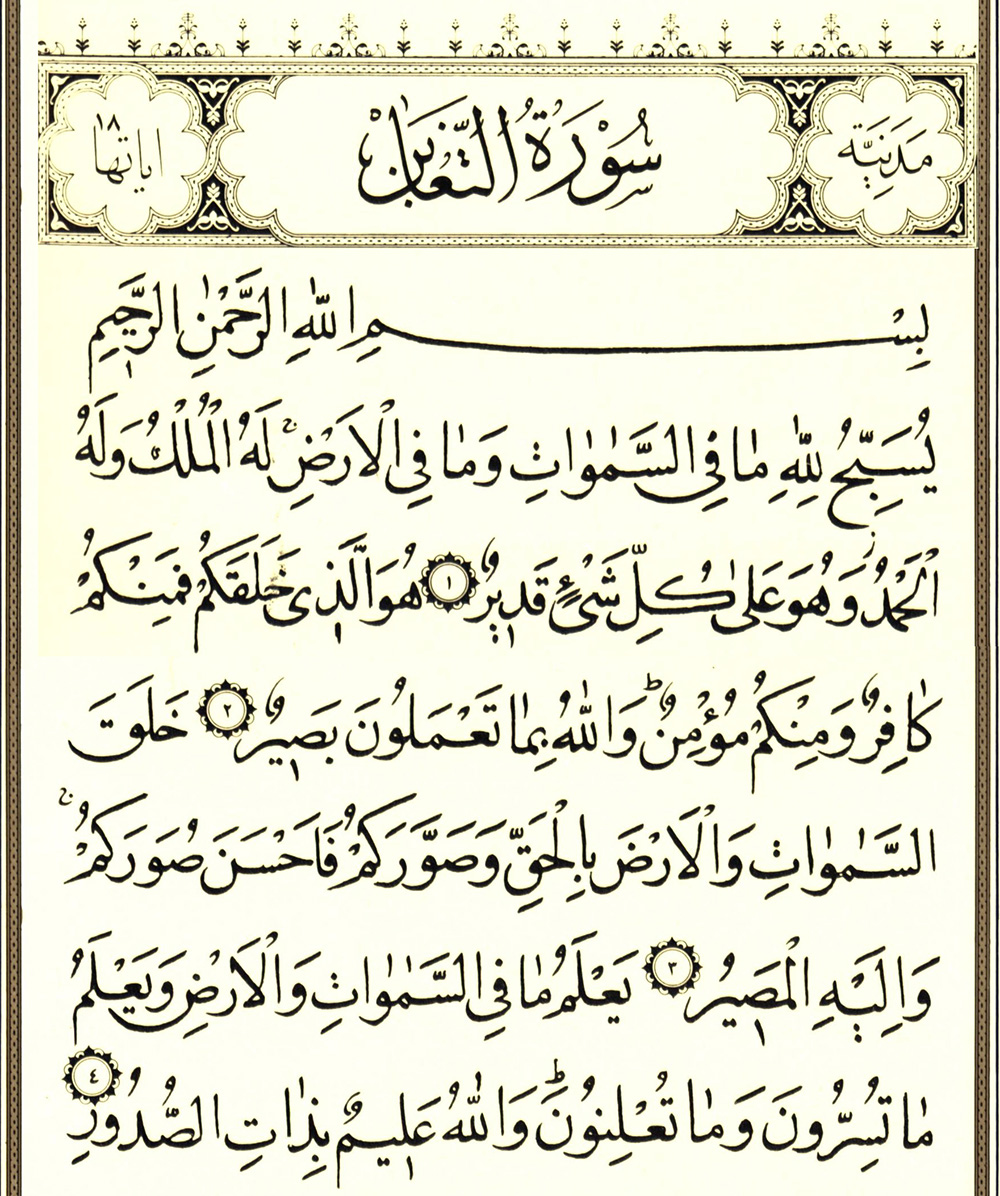 مَدَنِيَّة
سُوْرَةُ التَّغَابُنِ
اياتها ١٨
بِسْمِ اللّٰهِ الرَّحْمٰنِ الرَّحٖيمِ
يُسَبِّحُ لِلّٰهِ مَا فِي السَّمٰوَاتِ وَمَا فِي الْاَرْضِۚ لَهُ الْمُلْكُ وَلَهُ
الْحَمْدُ وَهُوَ عَلٰى كُلِّ شَيْءٍ قَدٖيرٌ ١ هُوَ الَّذٖي خَلَقَكُمْ فَمِنْكُمْ
كَافِرٌ وَمِنْكُمْ مُؤْمِنٌؕ وَاللّٰهُ بِمَا تَعْمَلُونَ بَصٖيرٌ ٢ خَلَقَ
السَّمٰوَاتِ وَالْاَرْضَ بِالْحَقِّ وَصَوَّرَكُمْ فَاَحْسَنَ صُوَرَكُمْۚ
وَاِلَيْهِ الْمَصٖيرُ ٣ يَعْلَمُ مَا فِي السَّمٰوَاتِ وَالْاَرْضِ وَيَعْلَمُ
مَا تُسِرُّونَ وَمَا تُعْلِنُونَؕ وَاللّٰهُ عَلٖيمٌ بِذَاتِ الصُّدُورِ ٤